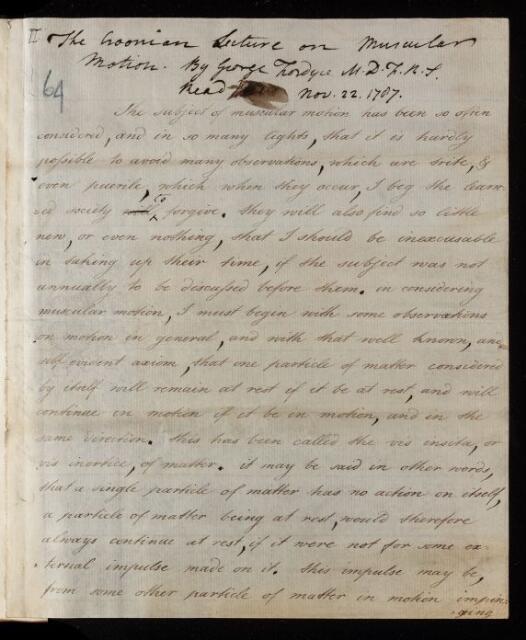 II
The Croonian Lecture on Muscular
Motion. By George Fordyce M.D.F.R.S.
Read Nov. 22. 1787.
64
The subject of muscular motion has been so often
considered, and in so many lights, that it is hardly
possible to avoid many observations, which are trite, &
even puerile, which when they occur, I beg the learn-
ed society to forgive. they will also find so little
new, or even nothing, that I should be inexcusable
in taking up their time, if the subject was not
annually to be descussed before them. in considering
muscular motion, I must begin with some observations
on motion in general, and with that well known, and
self evident axiom, that one particle of matter considered
by itself will remain at rest if it be at rest, and will
continue in motion if it be in motion, and in the
same direction. this has been called the vis insita, or
vis inertiæ, of matter. it may be said in other words,
that a single particle of matter has no action on itself,
a particle of matter being at rest, would therefore
always continue at rest, if it were not for some ex-
ternal impulse made on it. this impulse may be,
from some other particle of matter in motion impin-
ging